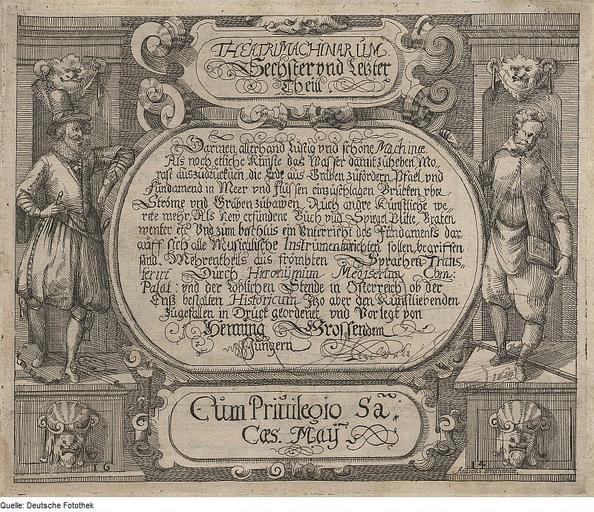 THEATRI MACHINARUM
Sechster vnd Letzter
Theill
Darinen allerhand Lustig vnd schöne Machinæ.
Als noch etliche Künste das Wasser damit zuheben Mo,
rast auszudrucken die Erde aus Gräben zufördern Pfael vnd
Fundamend in Meer vnd flüssen einzuschlagen Brücken vber
Ströme vnd Gräben zubawen, Auch andre Künstliche
mehr, Als New erfundene Buch vnd Spiegel Braten
wenter etc Vnd zum beschlus ein Vnterricht des Fundaments dar
auff sich alle Musicalische Instrumenta richten sollen, begriffen
sind. Mehrentheils aus frömbten Sprachen Trans,
ferirt Durch Hieronÿmum Megiserum Com:
Palat: vnd der löblichen Stende in Österreich ob der
Enß bestalten Historicum Itzo aber den Kunstliebenden
Zugefallen in Druck geordenet vnd Vorlegt von
Henning Grossen dem
Jüngern
Cum Priuilegio Sa.
Cæs. May
16 14